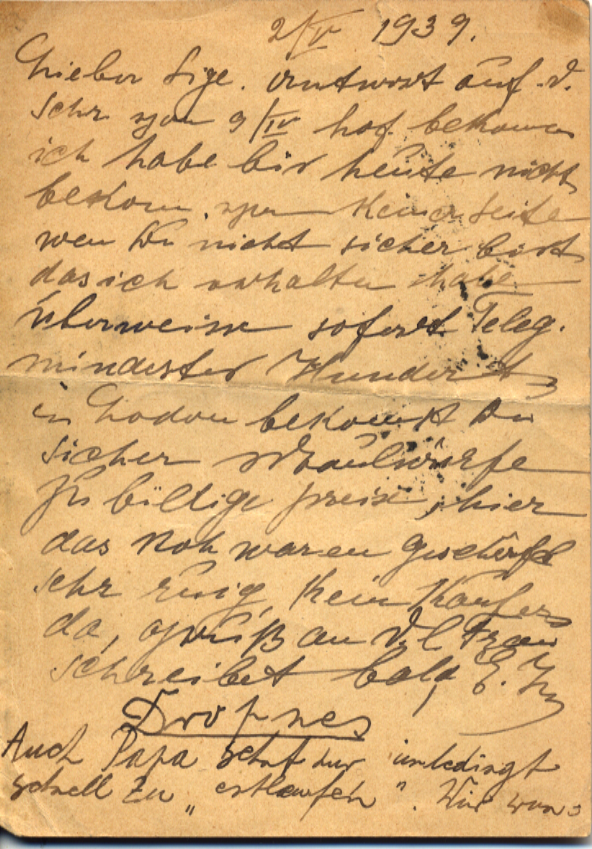 2/IV 1939.
Lieber Sige. Antwort auf d.
Schr. von 9/IV hof. bekomen
ich habe bis heute nicht
bekom. von keiner Seite
wen Du nicht sicher bist
das ich erhalten habe
überweise sofort Teleg.
mindester Hundert
in London bekomst Du
sicher Maulwürfe
zu billige preise, hier
das Roh waren geschäft
sehr ruig, kein Kaufers
da, gruß an Dl Frau
schreibet bald,
Auch Papa unbedingt
schnell zu "